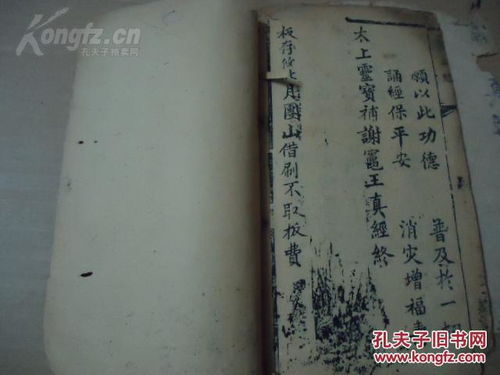 願以此功德 普及於一
誦經保平安 消灾增福
太上靈寶補謝竈王真經終
板存 上月團山借刷不取板費
Kongfz.cn
孔夫子拍卖网
孔夫子旧书网
www.kongfz.com